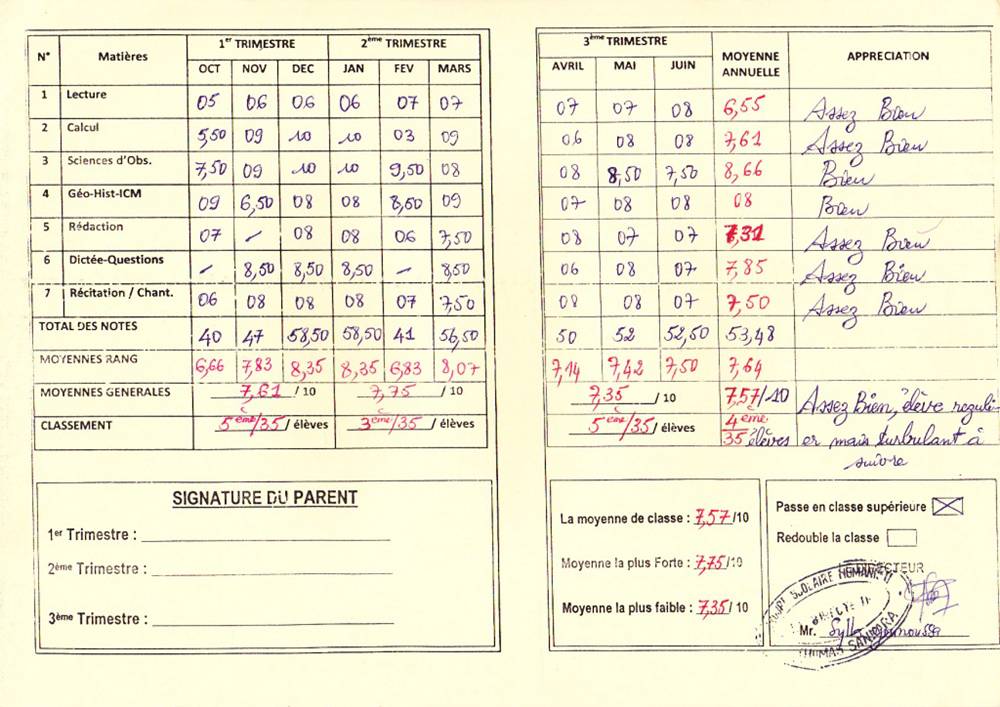 N° Matières 1er TRIMESTRE 2ème TRIMESTRE
OCT NOV DEC JAN FEV MARS
1 Lecture 05 06 06 06 07 07
2 Calcul 5,50 09 10 10 03 09
3 Sciences d'Obs. 7,50 09 10 10 9,50 08
4 Géo-Hist-ICM 09 6,50 08 08 8,50 09
5 Rédaction 07 - 08 08 06 7,50
6 Dictée-Questions - 8,50 8,50 8,50 - 8,50
7 Récitation / Chant. 06 08 08 08 07 7,50
TOTAL DES NOTES 40 47 58,50 58,50 41 56,50
MOYENNES RANG 6,66 7,83 8,35 8,35 6,83 8,07
MOYENNES GENERALES 7,61 / 10 7,75 / 10
CLASSEMENT 5ème/35 / élèves 3ème/35 / élèves
3ème TRIMESTRE MOYENNE ANNUELLE APPRECIATION
AVRIL MAI JUIN
07 07 08 6,55 Assez Bien
06 08 08 7,61 Assez Bien
08 8,50 7,50 8,66 Bien
07 08 08 08 Bien
08 07 07 7,31 Assez Bien
06 08 07 7,85 Assez Bien
08 08 07 7,50 Assez Bien
50 52 52,50 53,48
7,14 7,42 7,50 7,64
7,35 / 10 7,57/10 Assez Bien, élève reguli-
5ème/35 / élèves 4ème 35 élèves er mais turbulant à
suivre
SIGNATURE DU PARENT
1er Trimestre :
2ème Trimestre :
3ème Trimestre :
La moyenne de classe : 7,57/10
Moyenne la plus Forte : 7,75/10
Moyenne la plus faible : 7,35/ 10
Passe en classe supérieure
Redouble la classe
DIRECTEUR
SCOLAIRE
Mr. Sylla
THOMAS SANKARA